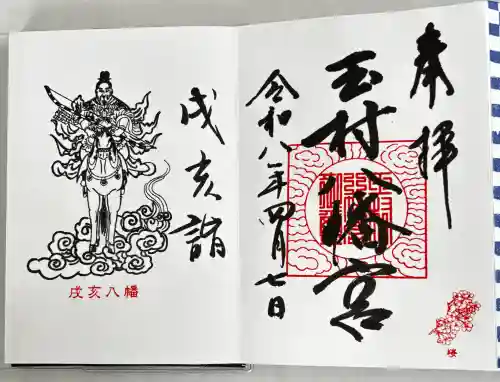 奉拝
玉村八幡宮
令和八年四月七日
桜
戌亥詣
戌亥八幡